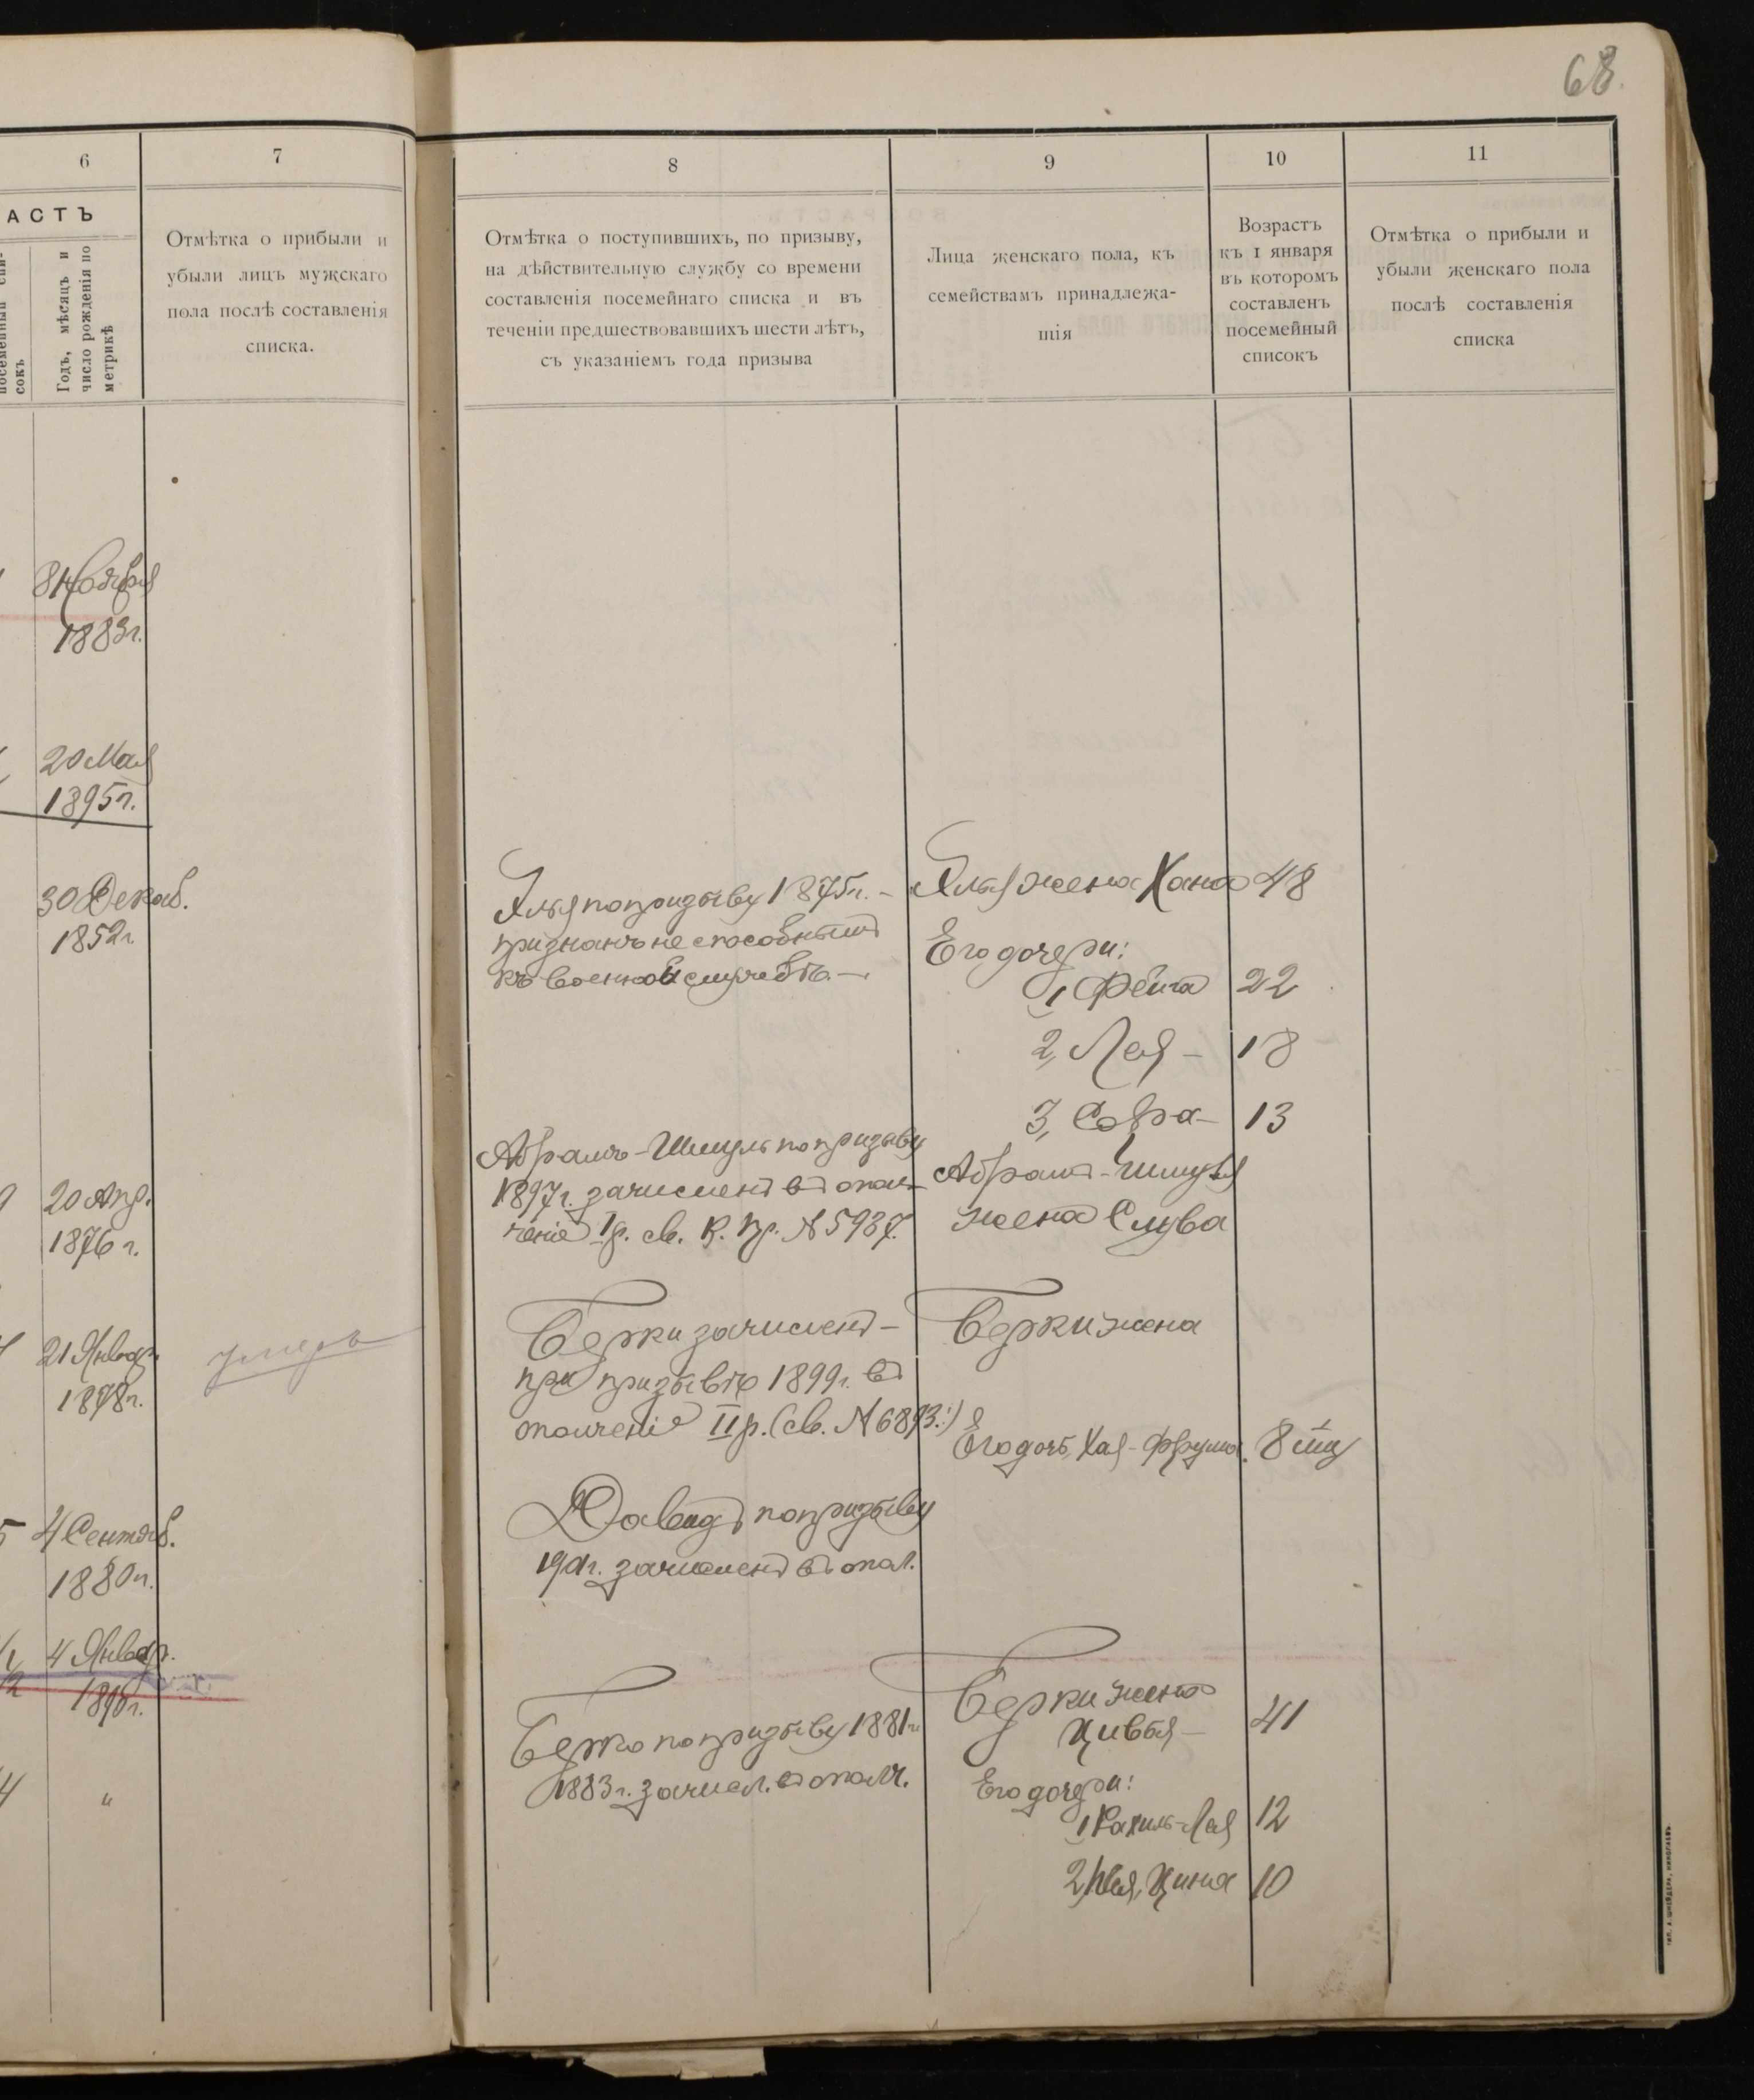 68.
6
7
8
9
10
11
АСТЪ
посемейный спи-
сокъ
Годъ, мѣсяцъ и
число рожденія по
метрикѣ
Отмѣтка о прибыли и
убыли лицъ мужскаго
пола послѣ составленія
списка.
Отмѣтка о поступившихъ, по призыву,
на дѣйствительную службу со времени
составленія посемейнаго списка и въ
теченіи предшествовавшихъ шести лѣтъ,
съ указаніемъ года призыва
Лица женскаго пола, къ
семействамъ принадлежа-
щія
Возрастъ
къ 1 января
въ которомъ
составленъ
посемейный
списокъ
Отмѣтка о прибыли и
убыли женскаго пола
послѣ составленія
списка
8 Ноября
1883г.
20 Мая
1895г.
30 Декаб.
1852г.
20 Апр.
1876г.
21 Январ.
1878г.
умеръ
4 Сентяб.
1880г.
4 Январ.
4
"
по призыву 1875г. –
признанъ не способнымъ
къ военной службѣ. –
Абрамъ-Шмуль по призыву
1897г. зачисленъ въ опол-
ченіе I р. св. К. Пр. № 5937.
Берки зачисленъ –
при призывѣ 1899г. въ
ополченіе II р. (св. № 6893.)
Давидъ по призыву
1901г. зачисленъ въ опол.
Берко по призыву 1881г.
1883г. зачисл. въ ополч.
жена Хана 48
Его дочери:
1, Фейга 22
2, Лея – 18
3, Сора – 13
Абрама-Шмуля
жена Слува
Берки жена
Его дочь, Хая-Фрума. 8
Берки жена
Цивья – 41
Его дочери:
1 Рахиль-Лея 12
2, Цина 10